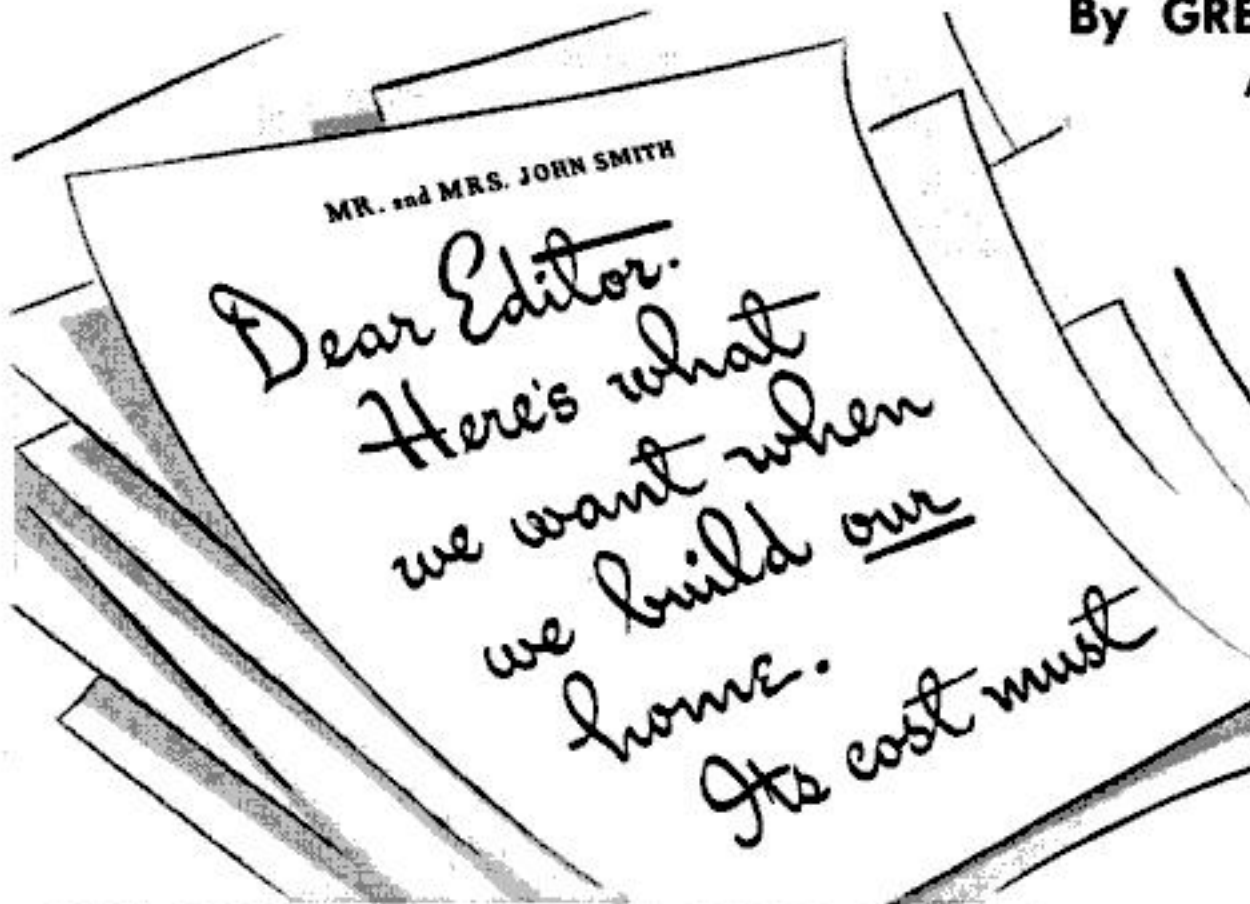 By GRE
MR. and MRS. JOHN SMITH
Dear Editor.
Here's what
we want when
we build our
home.
Its cost must